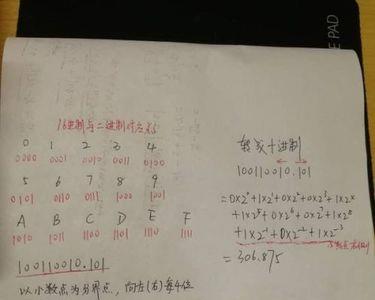 PAD
16进制与二进制对应表
0 1 2 3 4
0000 0001 0010 0011 0100
5 6 7 8 9
0101 0110 0111 1000 1001
A B C D E F
1010 1011 1100 1101 1110 1111
100110010.101
以小数点为分界点,向左(右)每4位
转成十进制
100110010.101
=0×2⁰+1×2¹+0×2²+0×2³+1×2⁴
+1×2⁵+0×2⁶+0×2⁷+1×2⁸
+1×2⁻¹+0×2⁻²+1×2⁻³
=306.875